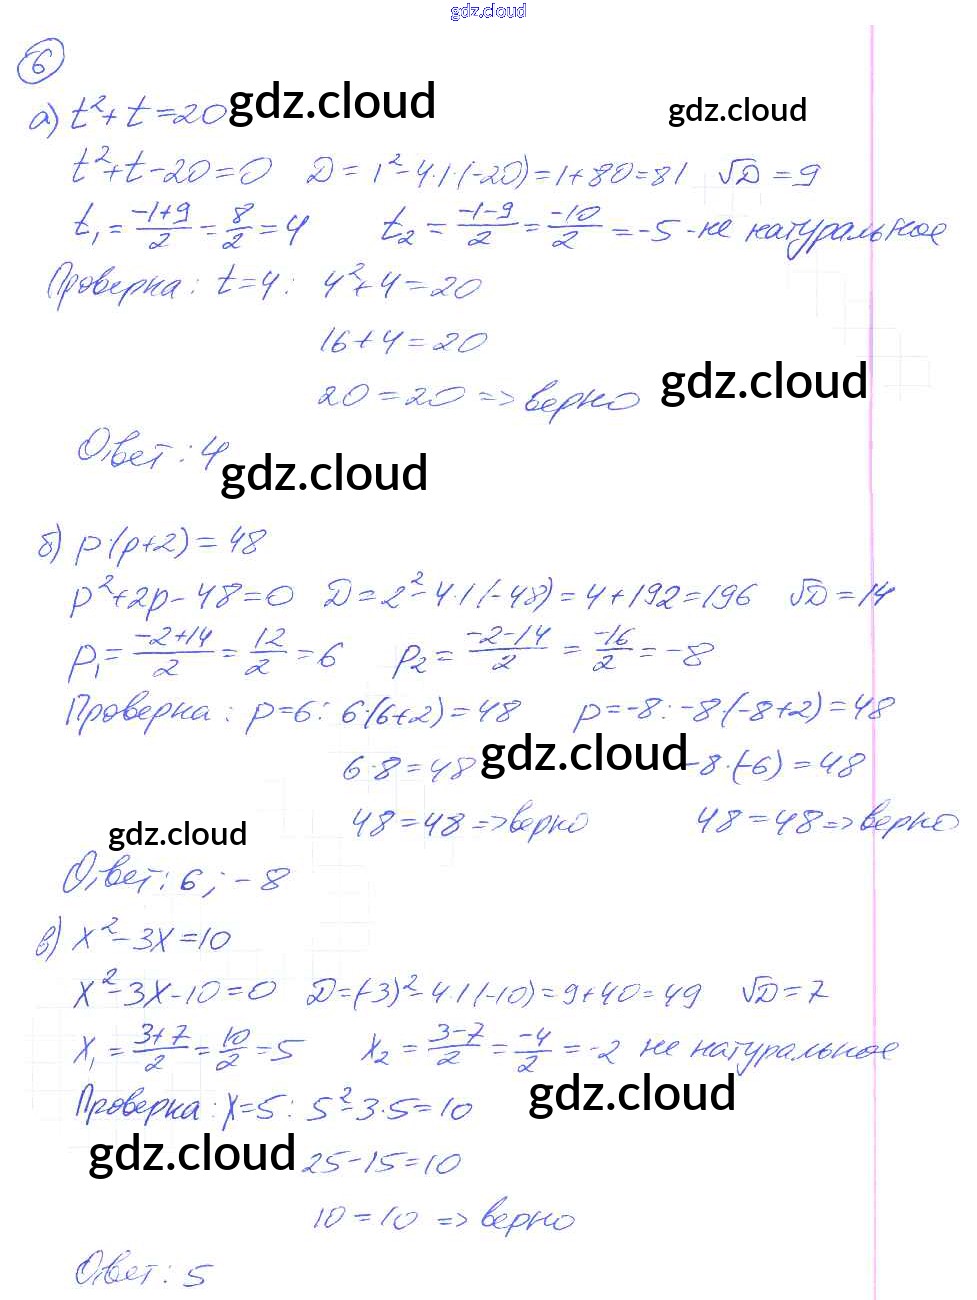 gdz.cloud
6
gdz.cloud
gdz.cloud
а) t²+t=20
t²+t-20=0 D=1²-4·1·(-20)=1+80=81 √D=9
t₁=(-1+9)/2=8/2=4 t₂=(-1-9)/2=-10/2=-5 - не натуральное
Проверка: t=4: 4²+4=20
16+4=20
gdz.cloud
20=20 => верно
Ответ: 4
gdz.cloud
б) p·(p+2)=48
p²+2p-48=0 D=2²-4·1·(-48)=4+192=196 √D=14
p₁=(-2+14)/2=12/2=6 p₂=(-2-14)/2=-16/2=-8
Проверка: p=6: 6·(6+2)=48 p=-8: -8·(-8+2)=48
gdz.cloud
6·8=48 -8·(-6)=48
48=48 => верно 48=48 => верно
gdz.cloud
Ответ: 6; -8
в) x²-3x=10
x²-3x-10=0 D=(-3)²-4·1·(-10)=9+40=49 √D=7
x₁=(3+7)/2=10/2=5 x₂=(3-7)/2=-4/2=-2 не натуральное
gdz.cloud
Проверка: x=5: 5²-3·5=10
gdz.cloud
25-15=10
10=10 => верно
Ответ: 5